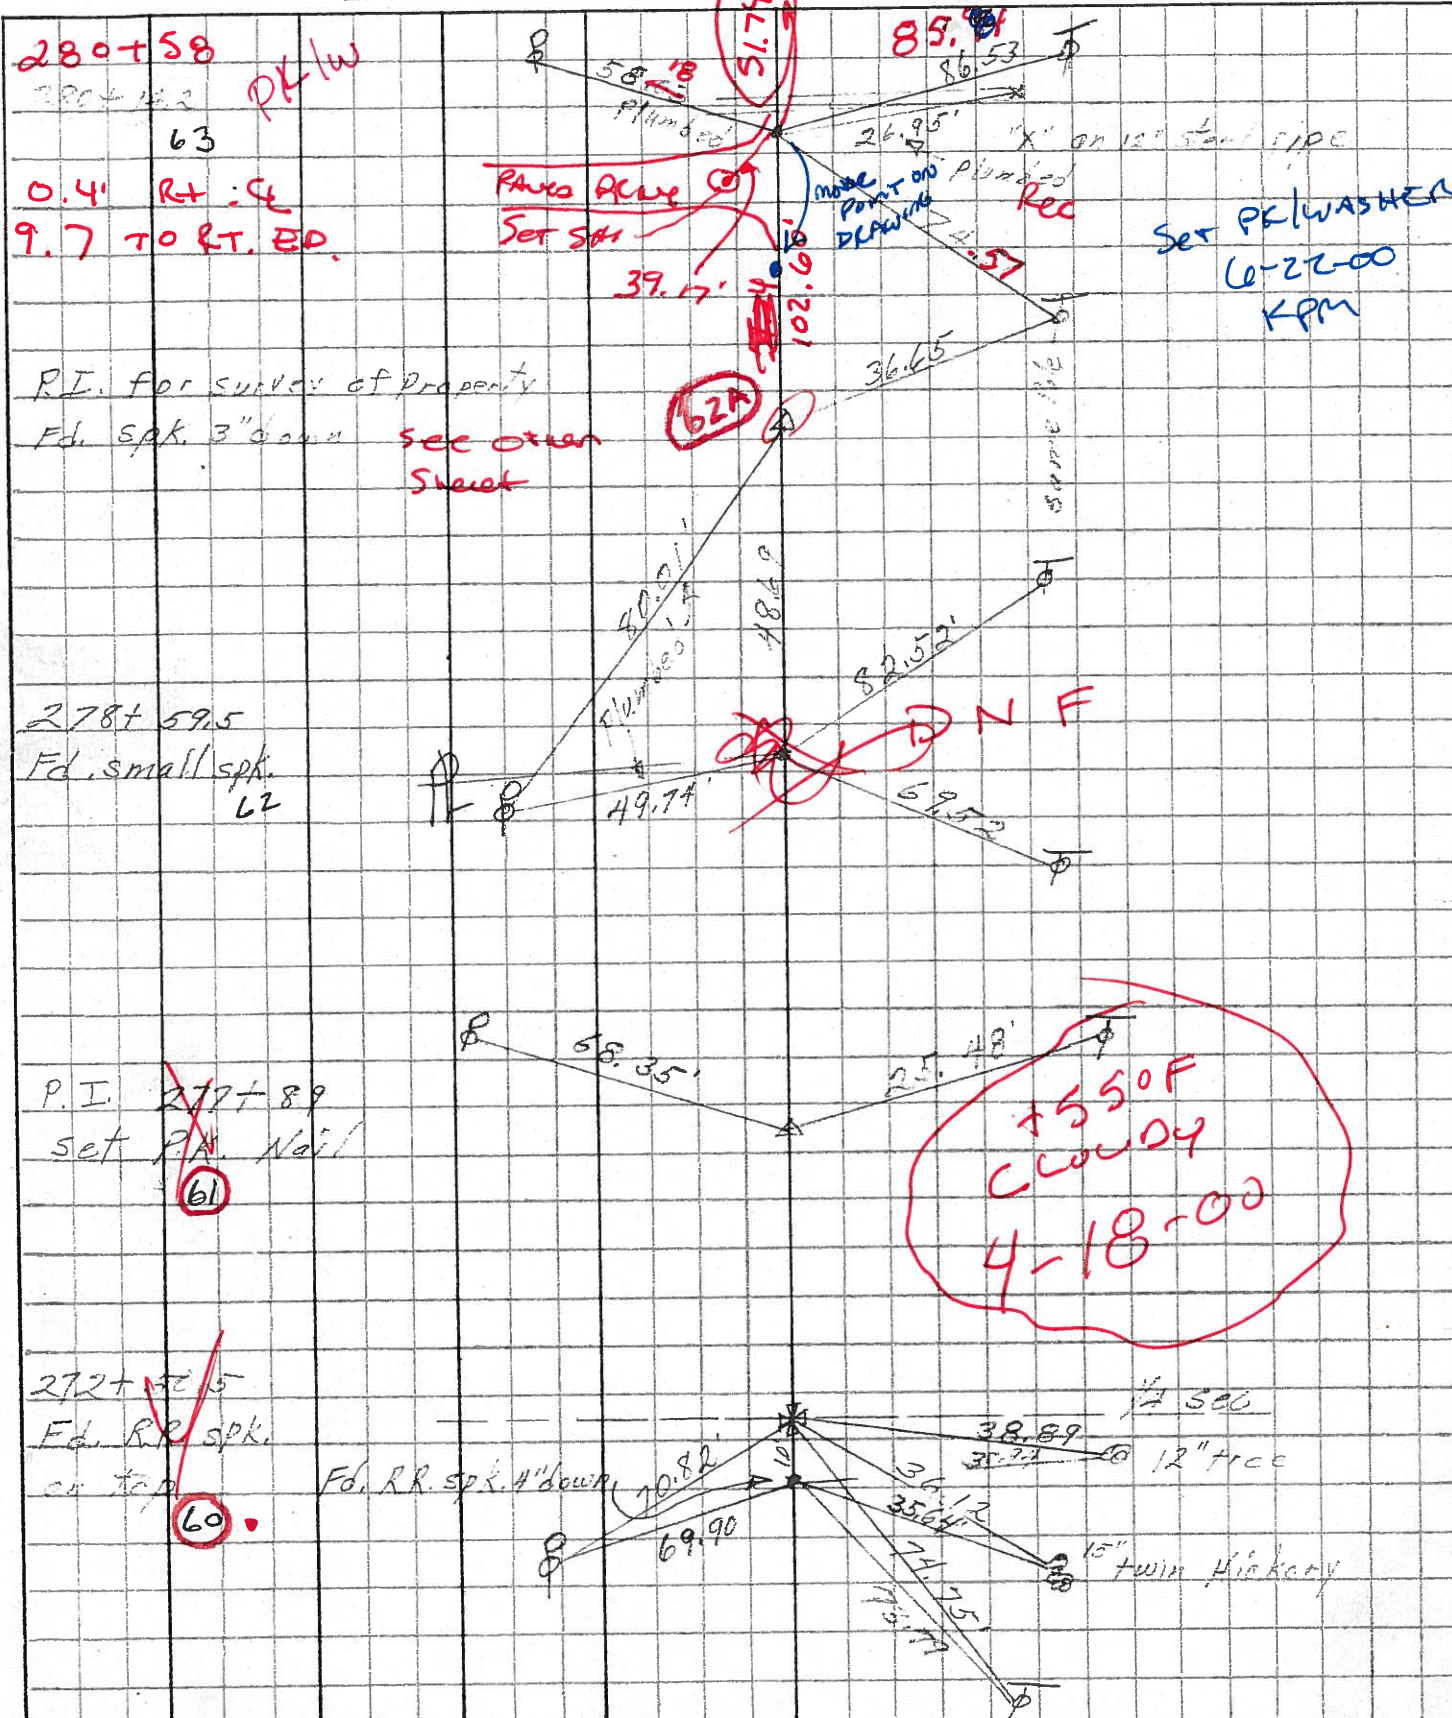 280+58
PK/W
63
0.4' Rt. ℄
9.7 TO RT. EP.
51.74
85.
58
.18
Plumbed
86.53
26.95'
"X" on 12" stand pipe
Plumbed
Rec
PAVED DRIVE
SET
39.17'
MOVE
POINT ON
DRAWING
102.6
.57
Set PK/WASHER
6-22-00
KPM
36.65
P.I. for survey of Property
Fd. spk. 3" down
See other
Sheet
62A
80.01'
Plumbed
48.69
82.52'
278+59.5
Fd. small spk.
62
49.74'
D N F
69.52
68.35'
25.48'
P.I. 277+89
set P.K. Nail
61
+55°F
CLOUDY
4-18-00
272+
Fd. R.R. spk.
on top
60
Fd. R.R. spk. 4" down
70.82'
69.90
10
1/4 sec
38.89
12" tree
36.12
35.64
15" twin Hickory
74.75'